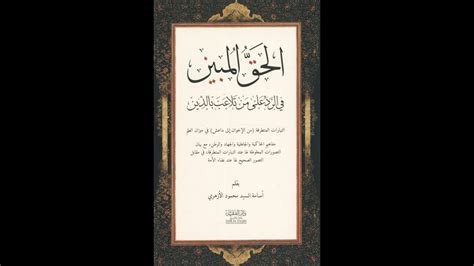 الحق المبين
في الرد على من تلاعب بالدين
التيارات المتطرفة (من الإخوان إلى داعش) في ميزان العلم
مفاهيم الحاكمية والجاهلية والجهاد والوطن، مع بيان
التصورات المغلوطة لها عند التيارات المتطرفة، في مقابل
التصور الصحيح لها عند علماء الأمة
بقلم
أسامة السيد محمود الأزهري